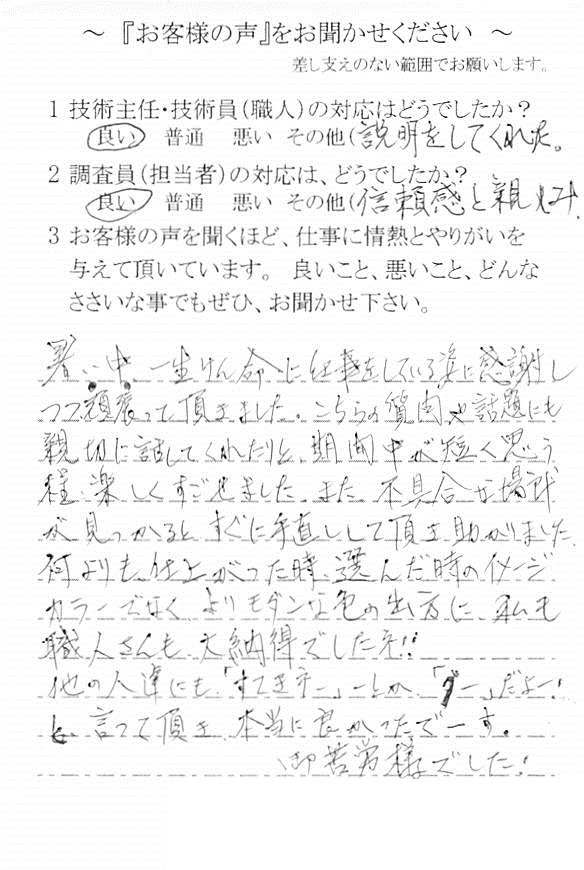 ～ 『お客様の声』をお聞かせください ～
差し支えのない範囲でお願いします。
1 技術主任・技術員(職人)の対応はどうでしたか?
良い 普通 悪い その他(説明をしてくれた。
2 調査員(担当者)の対応は、どうでしたか?
良い 普通 悪い その他(信頼感と親しみ
3 お客様の声を聞くほど、仕事に情熱とやりがいを
与えて頂いています。 良いこと、悪いこと、どんな
ささいな事でもぜひ、お聞かせ下さい。
暑い中 一生けん命に仕事をしている姿に感謝し
つつ 頑張って頂きました。こちらの質問や話題にも
親切に話してくれたりと、期間中が短く思う
程、楽しくすごせました。また、不具合な場所
が見つかると すぐに手直しして頂き助かりました。
何よりも、仕上がった時、選んだ時のイメージ
カラーでなく、よりモダンな色の出方に、私も
職人さんも、大納得でしたネ!!
他の人達にも、「すてきネー」とか、「グー」だよー!
と、言って頂き 本当に良かったでーす。
御苦労様でした!